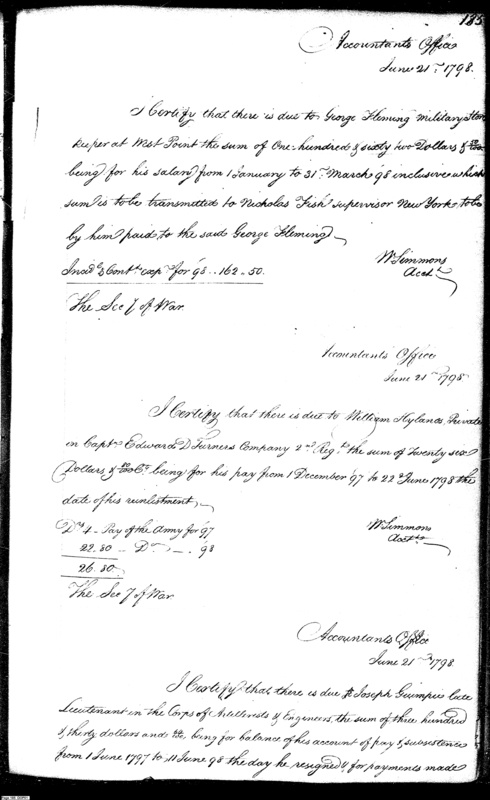 185
Accountants Office
June 21st 1798.
I Certify that there is due to George Fleming Military Store
keeper at West Point the sum of One hundred & sixty two Dollars &
being for his salary from 1 January to 31st March 98 inclusive which
sum is to be transmitted to Nicholas Fish supervisor New York to be
by him paid to the said George Fleming
Wm Simmons
Acct
Incid & Contt exps for 98 .. 162 .. 50.
The Secy of War
Accountants Office
June 21st 1798
I Certify that there is due to William Hylands, Private
in Captn Edward D Turners Company 2nd Regt the sum of Twenty six
Dollars, & 80/00 Cts being for his pay from 1 December 97 to 22d June 1798 the
date of his reinlistment
Wm Simmons
Acctt
Ds 4 .. Pay of the Army for 97
22.80 .. Do .. 98
26.80.
The Secy of War
Accountants Office
June 21st 1798
I Certify that there is due to Joseph Guimpé late
Lieutenant in the Corps of Artillerists & Engineers, the sum of three hundred
& thirty dollars and being for balance of his account of pay & subsistence
from 1 June 1797 to 11 June 98 the day he resigned & for payments made